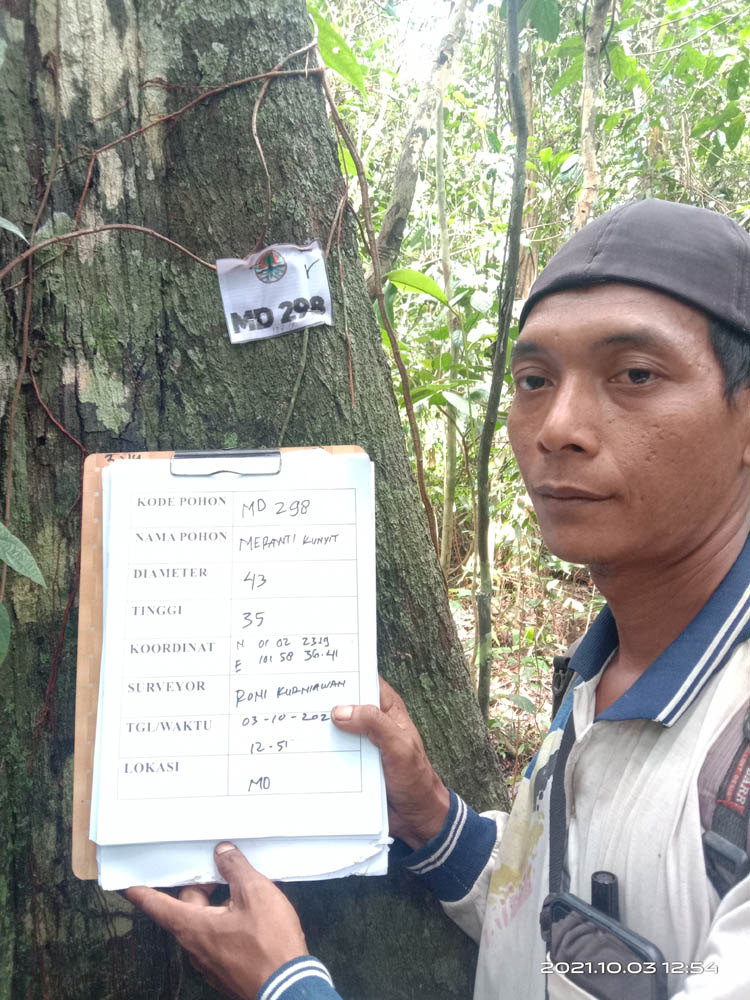 MD 298
KODE POHON MD 298
NAMA POHON MERANTI KUNYIT
DIAMETER 43
TINGGI 35
KOORDINAT N 01 02 23.9
E 101 58 36.41
SURVEYOR RONI KURNIAWAN
TGL/WAKTU 03-10-202
12-51
LOKASI MD
2021.10.03 12:54